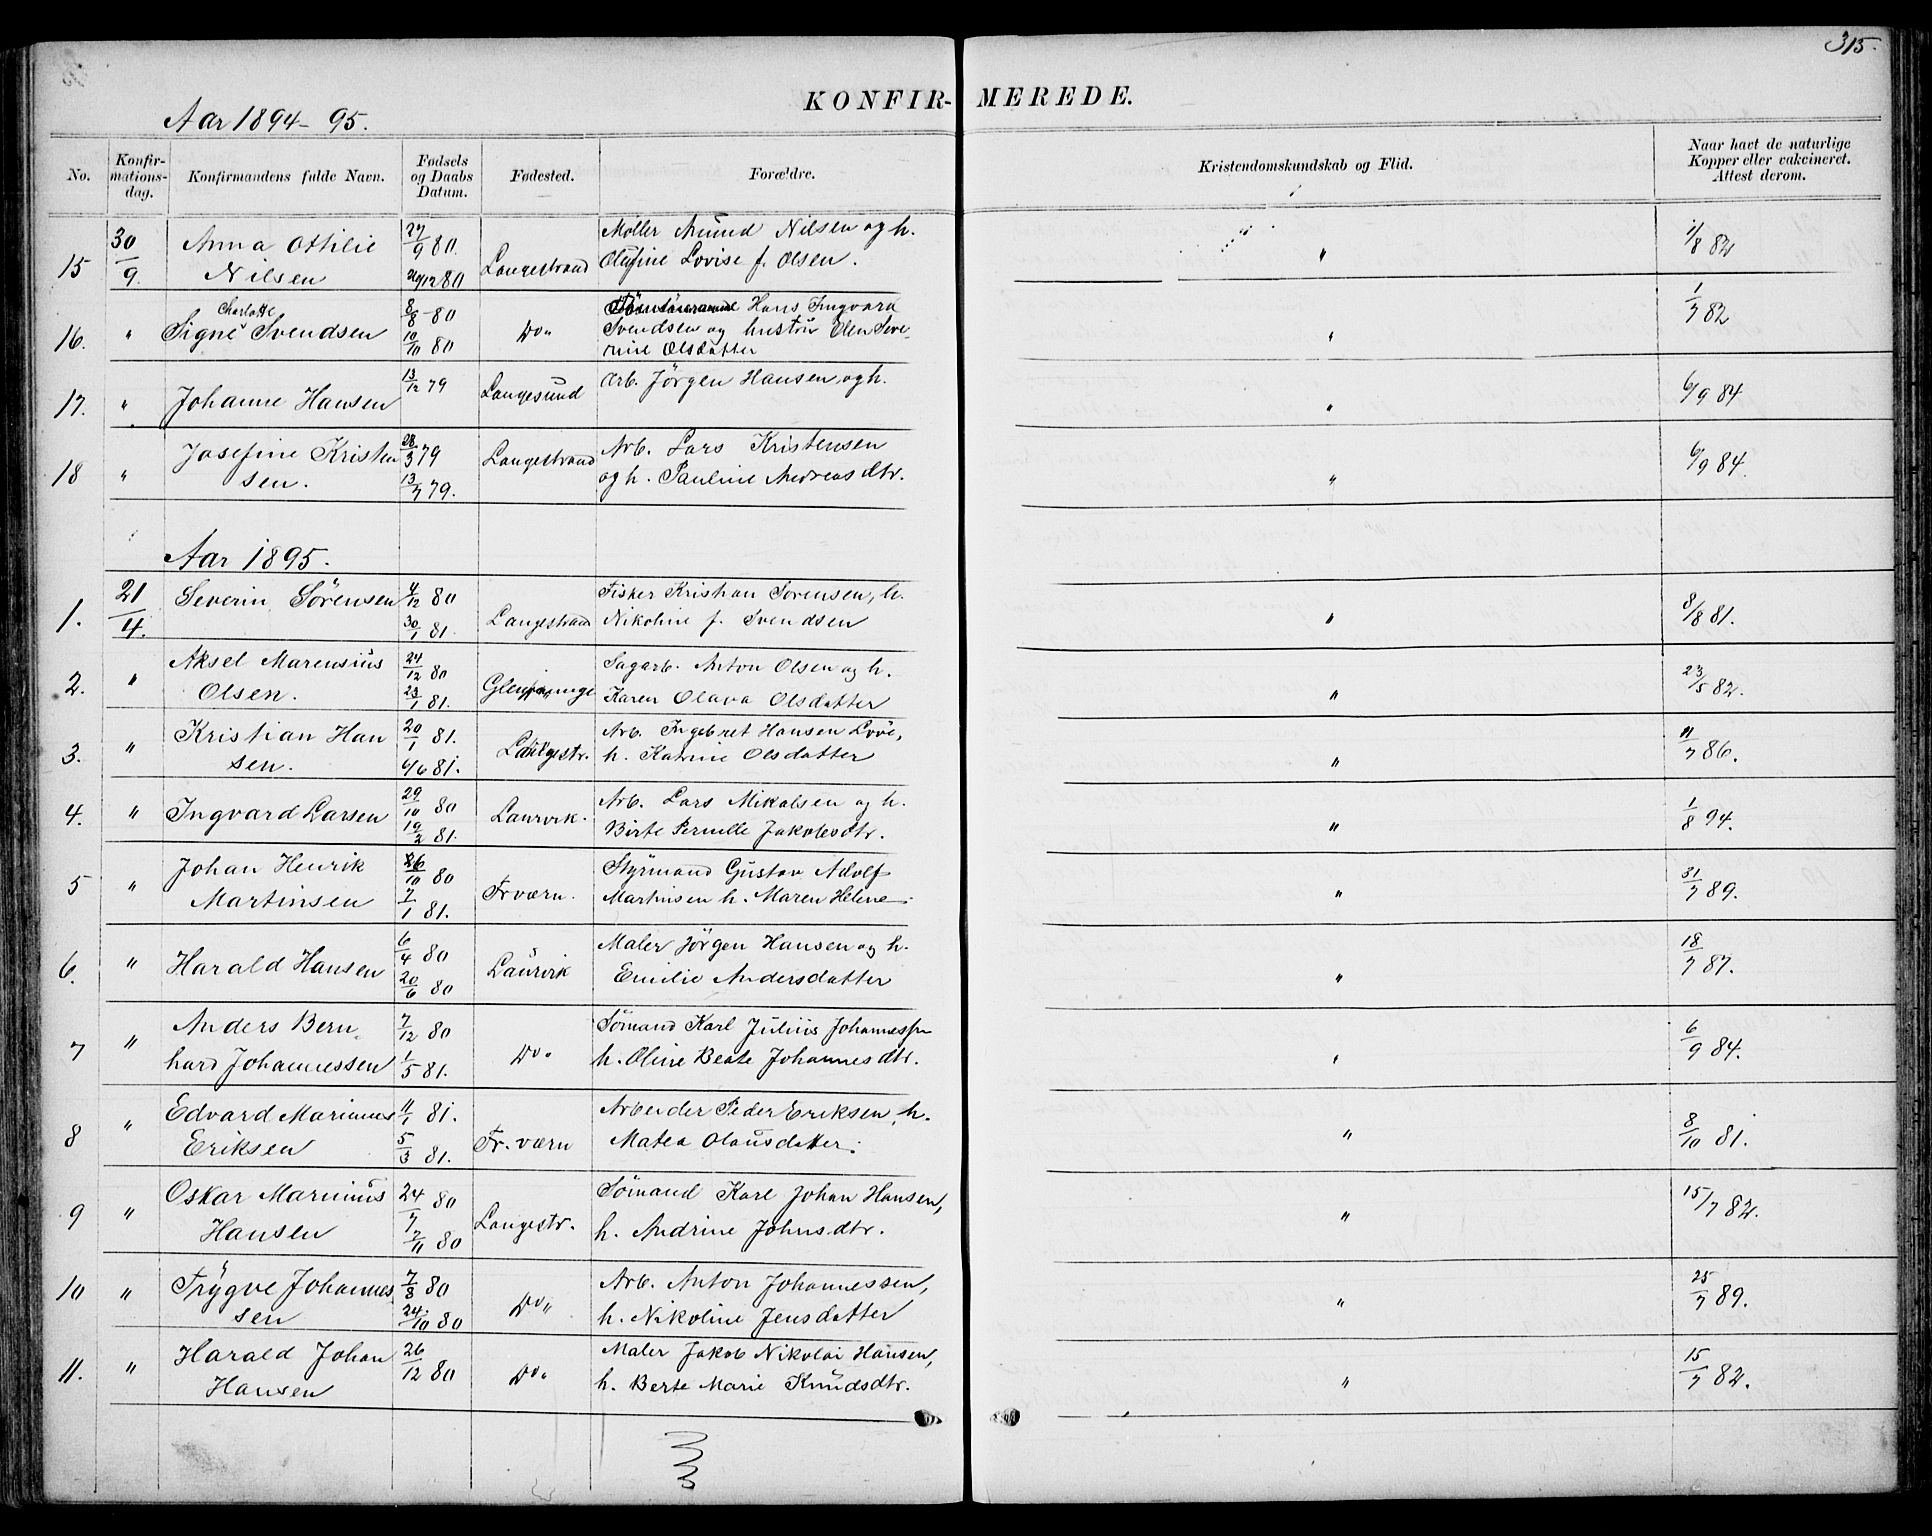 315.
KONFIR- MEREDE.
Aar 1894-95.
No. Konfir-mations-dag. Konfirmandens fulde Navn. Fødsels og Daabs Datum. Fødested. Forældre. Kristendomskundskab og Flid. Naar havt de naturlige Kopper eller vakcineret. Attest derom.
15 30/9. Anna Ottilie 27/9 80. Langestrand Møller Amund Nilsen og h. " 11/8 82
Nilsen 29/12 80 Olufine Lovise f. Olsen.
16. " Charlotte 8/8 80 Do " Hans Ingvara " 1/7 82
Signe Svendsen 10/10 80 Svendsen og hustru Elen Seve-
rine Olsdatter
17. " Johanne Hansen 13/12 79 Langesund Arb. Jörgen Hansen og h. " 6/9 84
18 " Josefine Kristen 28/3 79 Langestrand Arb. Lars Kristensen " 6/9 84.
sen. 13/7 79. og h. Pauline Andreasdtr.
Aar 1895.
1. 21/4. Severin Sörensen 4/12 80 Langestrand Fisker Kristian Sorensen, h. " 8/8 81.
30/1 81. Nikoline f. Svendsen
2. " Aksel Marensius 24/12 80 Sagarb. Anton Olsen og h. " 23/5 82.
Olsen. 23/1 81. Karen Olava Olsdatter
3. " Kristian Han 20/1 81. Langestr. Arb. Ingebret Hansen Love, " 11/7 86.
sen. 4/6 81. h. Katrine Olsdatter
4. " Ingvard Larsen 29/10 80 Laurvik. Arb. Lars Mikalsen og h. " 1/8 94.
19/2 81. Birte Pernille Jakobsdtr.
5 " Johan Henrik 26/10 80 Fr værn. Styrmand Gustav Adolf " 31/7 89.
Martinsen 7/1 81. Martinsen h. Maren Helene.
6. " Harald Hansen 6/4 80 Laurvik Maler Jörgen Hansen og h. " 18/7 87.
20/6 80 Emilie Andersdatter
7 " Anders Bern- 7/12 80 Do " Sömand Karl Julius Johannessen " 6/9 84.
hard Johannessen 1/5 81. h. Oline Beate Johannesdtr.
8 " Edvard Marinus 11/1 81. Fr. værn Arbeider Peder Eriksen, h. " 8/10 81.
Eriksen 5/3 81. Matea Olausdatter.
9 " Oskar Marinius 24/7 80 Langestr. Sömand Karl Johan Hansen, " 15/7 82.
Hansen 7/11 80 h. Andrine Johnsdtr.
10 " Trygve Johannes 7/8 80 Do " Arb. Anton Johannessen, " 25/7 89.
sen 24/10 80 h. Nikoline Jensdatter
11. " Harald Johan 26/12 80 Do " Maler Jakob Nikolai Hansen, " 15/7 82.
Hansen h. Berte Marie Knudsdtr.